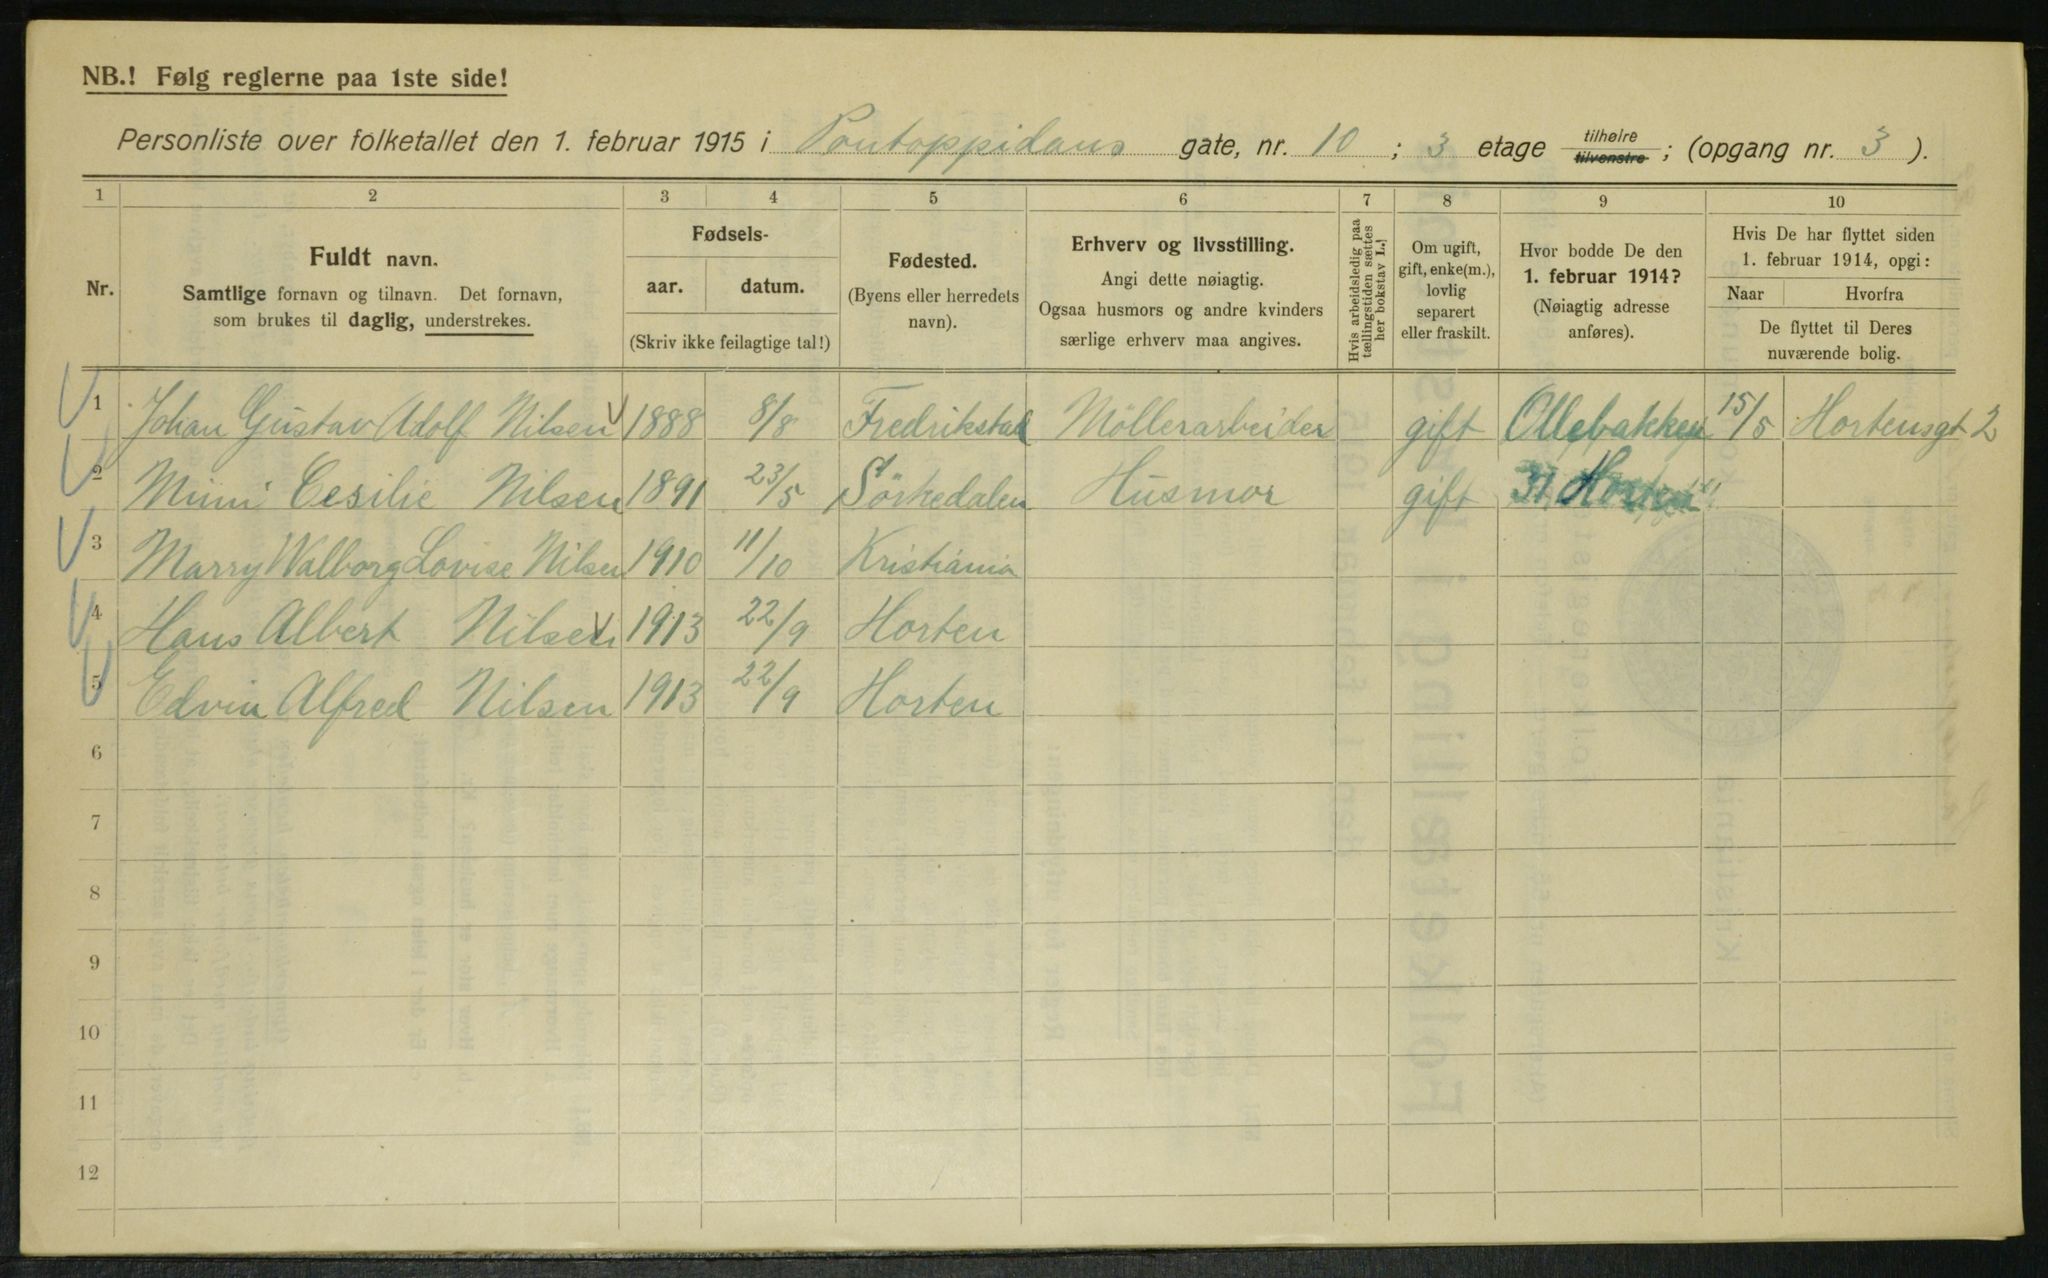 NB.! Følg reglerne paa 1ste side!
Personliste over folketallet den 1. februar 1915 i Pontoppidans gate, nr. 10 ; 3 etage tilhøire tilvenstre ; (opgang nr. 3 ).
1 2 3 4 5 6 7 8 9 10
Nr.
Fuldt navn.
Samtlige fornavn og tilnavn. Det fornavn,
som brukes til daglig, understrekes.
Fødsels-
aar. datum.
(Skriv ikke feilagtige tal!)
Fødested.
(Byens eller herredets
navn).
Erhverv og livsstilling.
Angi dette nøiagtig.
Ogsaa husmors og andre kvinders
særlige erhverv maa angives.
Hvis arbeidsledig paa
tællingstiden sættes
her bokstav L.]
Om ugift,
gift, enke(m.),
lovlig
separert
eller fraskilt.
Hvor bodde De den
1. februar 1914?
(Nøiagtig adresse
anføres).
Hvis De har flyttet siden
1. februar 1914, opgi:
Naar Hvorfra
De flyttet til Deres
nuværende bolig.
1 Johan Gustav Adolf Nilsen 1888 8/8 Fredrikstad Möllerarbeider gift Ollebakken 15/5 Hortensgt 2
2 Mimi Cesilie Nilsen 1891 23/5 Sörkedalen Husmor gift 31 Horten
3 Marry Walborg Lovise Nilsen 1910 11/10 Kristiania
4 Hans Albert Nilsen 1913 22/9 Horten
5 Edvin Alfred Nilsen 1913 22/9 Horten
6
7
8
9
10
11
12